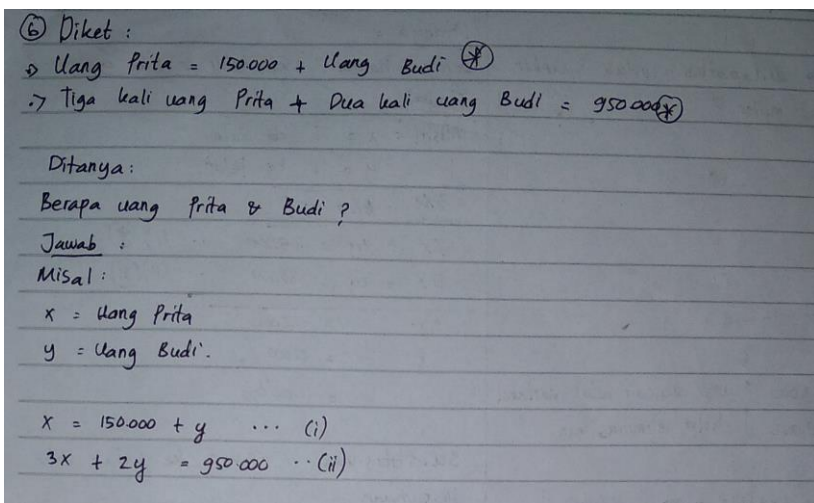 ⑥ Diket :
→ Uang Prita = 150.000 + Uang Budi *
→ Tiga kali uang Prita + Dua kali uang Budi = 950.000 *
Ditanya :
Berapa uang Prita & Budi ?
Jawab :
Misal :
x = Uang Prita
y = Uang Budi.
x = 150.000 + y ... (i)
3x + 2y = 950.000 .. (ii)